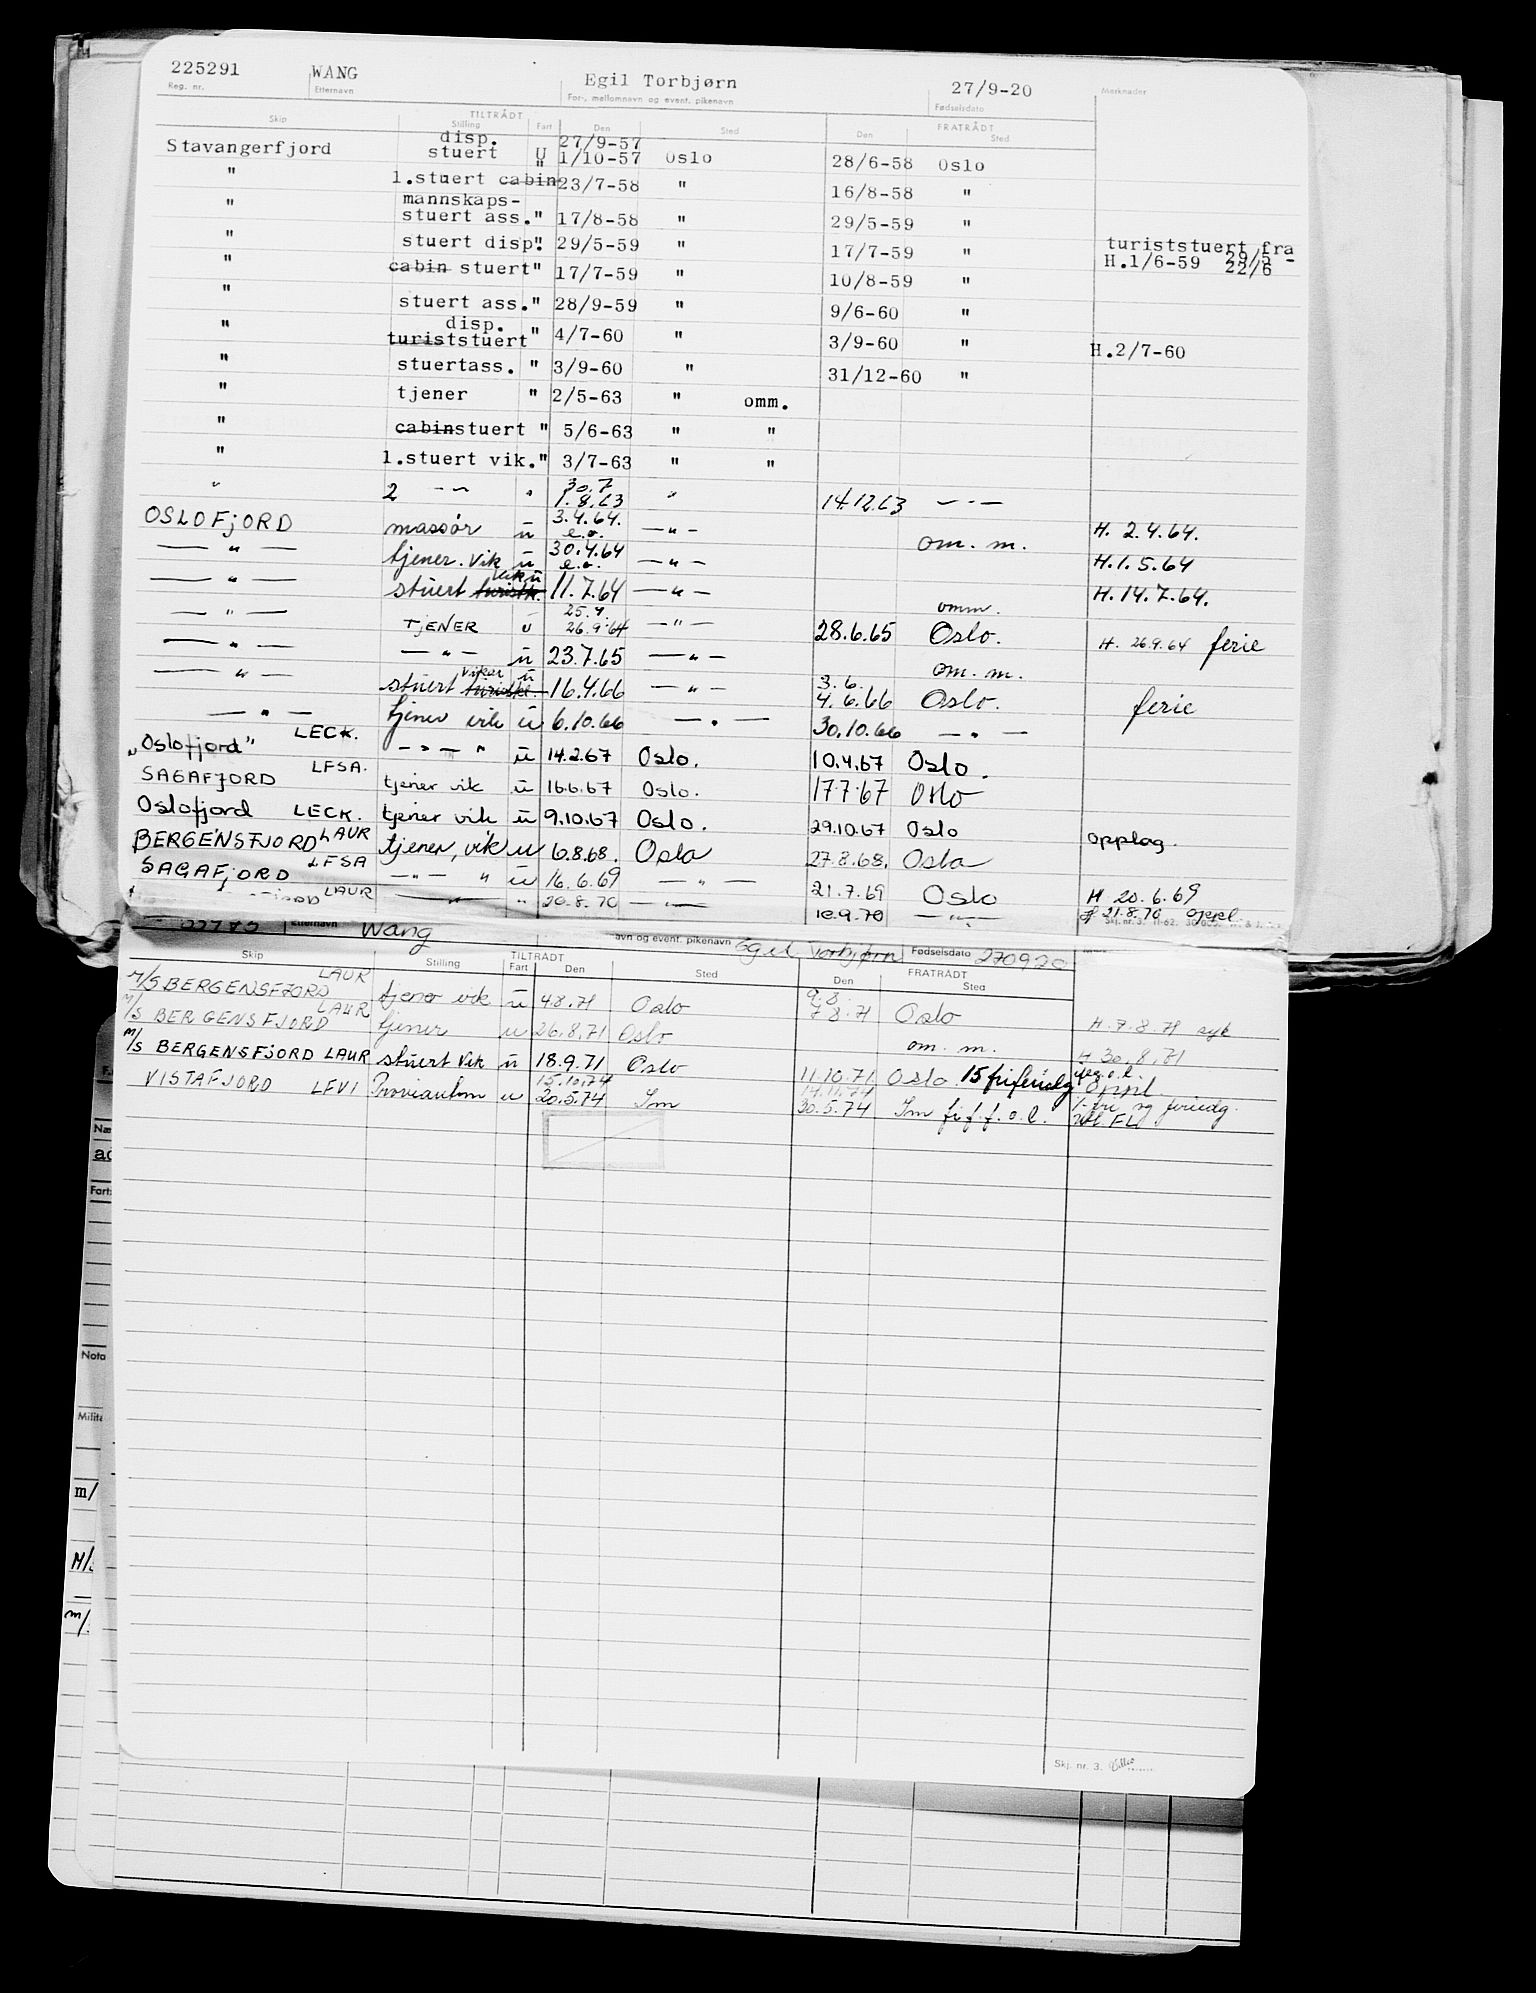 225291 WANG Egil Torbjørn 27/9-20
Reg. nr. Etternavn For-, mellomnavn og event. pikenavn Fødselsdato Merknader
TILTRÅDT FRATRÅDT
Skip Stilling Fart Den Sted Den Sted
disp. 27/9-57
Stavangerfjord stuert U 1/10-57 Oslo 28/6-58 Oslo
" 1.stuert cabin " 23/7-58 " 16/8-58 "
mannskaps-
" stuert ass. " 17/8-58 " 29/5-59 "
" stuert disp. " 29/5-59 " 17/7-59 " turiststuert fra
H.1/6-59 29/5 -
22/6
" cabin stuert " 17/7-59 " 10/8-59 "
" stuert ass. " 28/9-59 " 9/6-60 "
disp.
" turiststuert " 4/7-60 " 3/9-60 " H.2/7-60
" stuertass. " 3/9-60 " 31/12-60 "
" tjener " 2/5-63 " omm.
" cabinstuert " 5/6-63 " "
" 1.stuert vik. " 3/7-63 " "
30.7
" 2 -"- " 1.8.63 " 14.12.63 -"-
OSLOFJORD massør u 3.4.64. e.o. -"- om. m. H. 2.4.64.
-"- tjener. vik u 30.4.64 e.o. -"- H.1.5.64
-"- stuert turistk. vik u 11.7.64 -"- omm. H. 14.7.64.
25.9.
-"- TJENER u 26.9.64 -"- 28.6.65 Oslo. H. 26.9.64 ferie
-"- -"- u 23.7.65 -"- om. m.
3.6.
-"- stuert turistkl. vikar u 16.4.66 -"- 4.6.66 Oslo. ferie
-"- tjener vik u 6.10.66 -"- 30.10.66 -"-
„Oslofjord" LECK. -"- " u 14.2.67 Oslo. 10.4.67 Oslo.
SAGAFJORD LFSA. tjener vik u 16.6.67 Oslo. 17.7.67 Oslo
Oslofjord LECK. tjener vik u 9.10.67 Oslo. 29.10.67 Oslo opplag.
BERGENSFJORD LAUR tjener, vik u 6.8.68. Oslo 27.8.68. Oslo
SAGAFJORD LFSA -"- " u 16.6.69 -"- 21.7.69 Oslo H 20.6.69
LAUR -"- " 20.8.70 -"- 10.9.70 -"- H 21.8.70 oppl.
Etternavn Wang avn og event. pikenavn Egil Torbjørn Fødselsdato 270920
TILTRÅDT FRATRÅDT
Skip Stilling Fart Den Sted Den Sted
9.8.
M/S BERGENSFJORD LAUR tjener vik u 4.8.71 Oslo 7.8.71 Oslo H. 7.8.71 syk
M/S BERGENSFJORD LAUR tjener u 26.8.71 Oslo om. m. H 30.8.71
M/S BERGENSFJORD LAUR stuert vik u 18.9.71 Oslo 11.10.71 Oslo 15 friferiedg oppl.
15.10.74 14.11.74
VISTAFJORD LFVI Proviantom u 20.5.74 Im 30.5.74 Im fi.f.f.o.l. fri og feriedg.
Skj. nr. 3.
Nota
m/
M/
m/